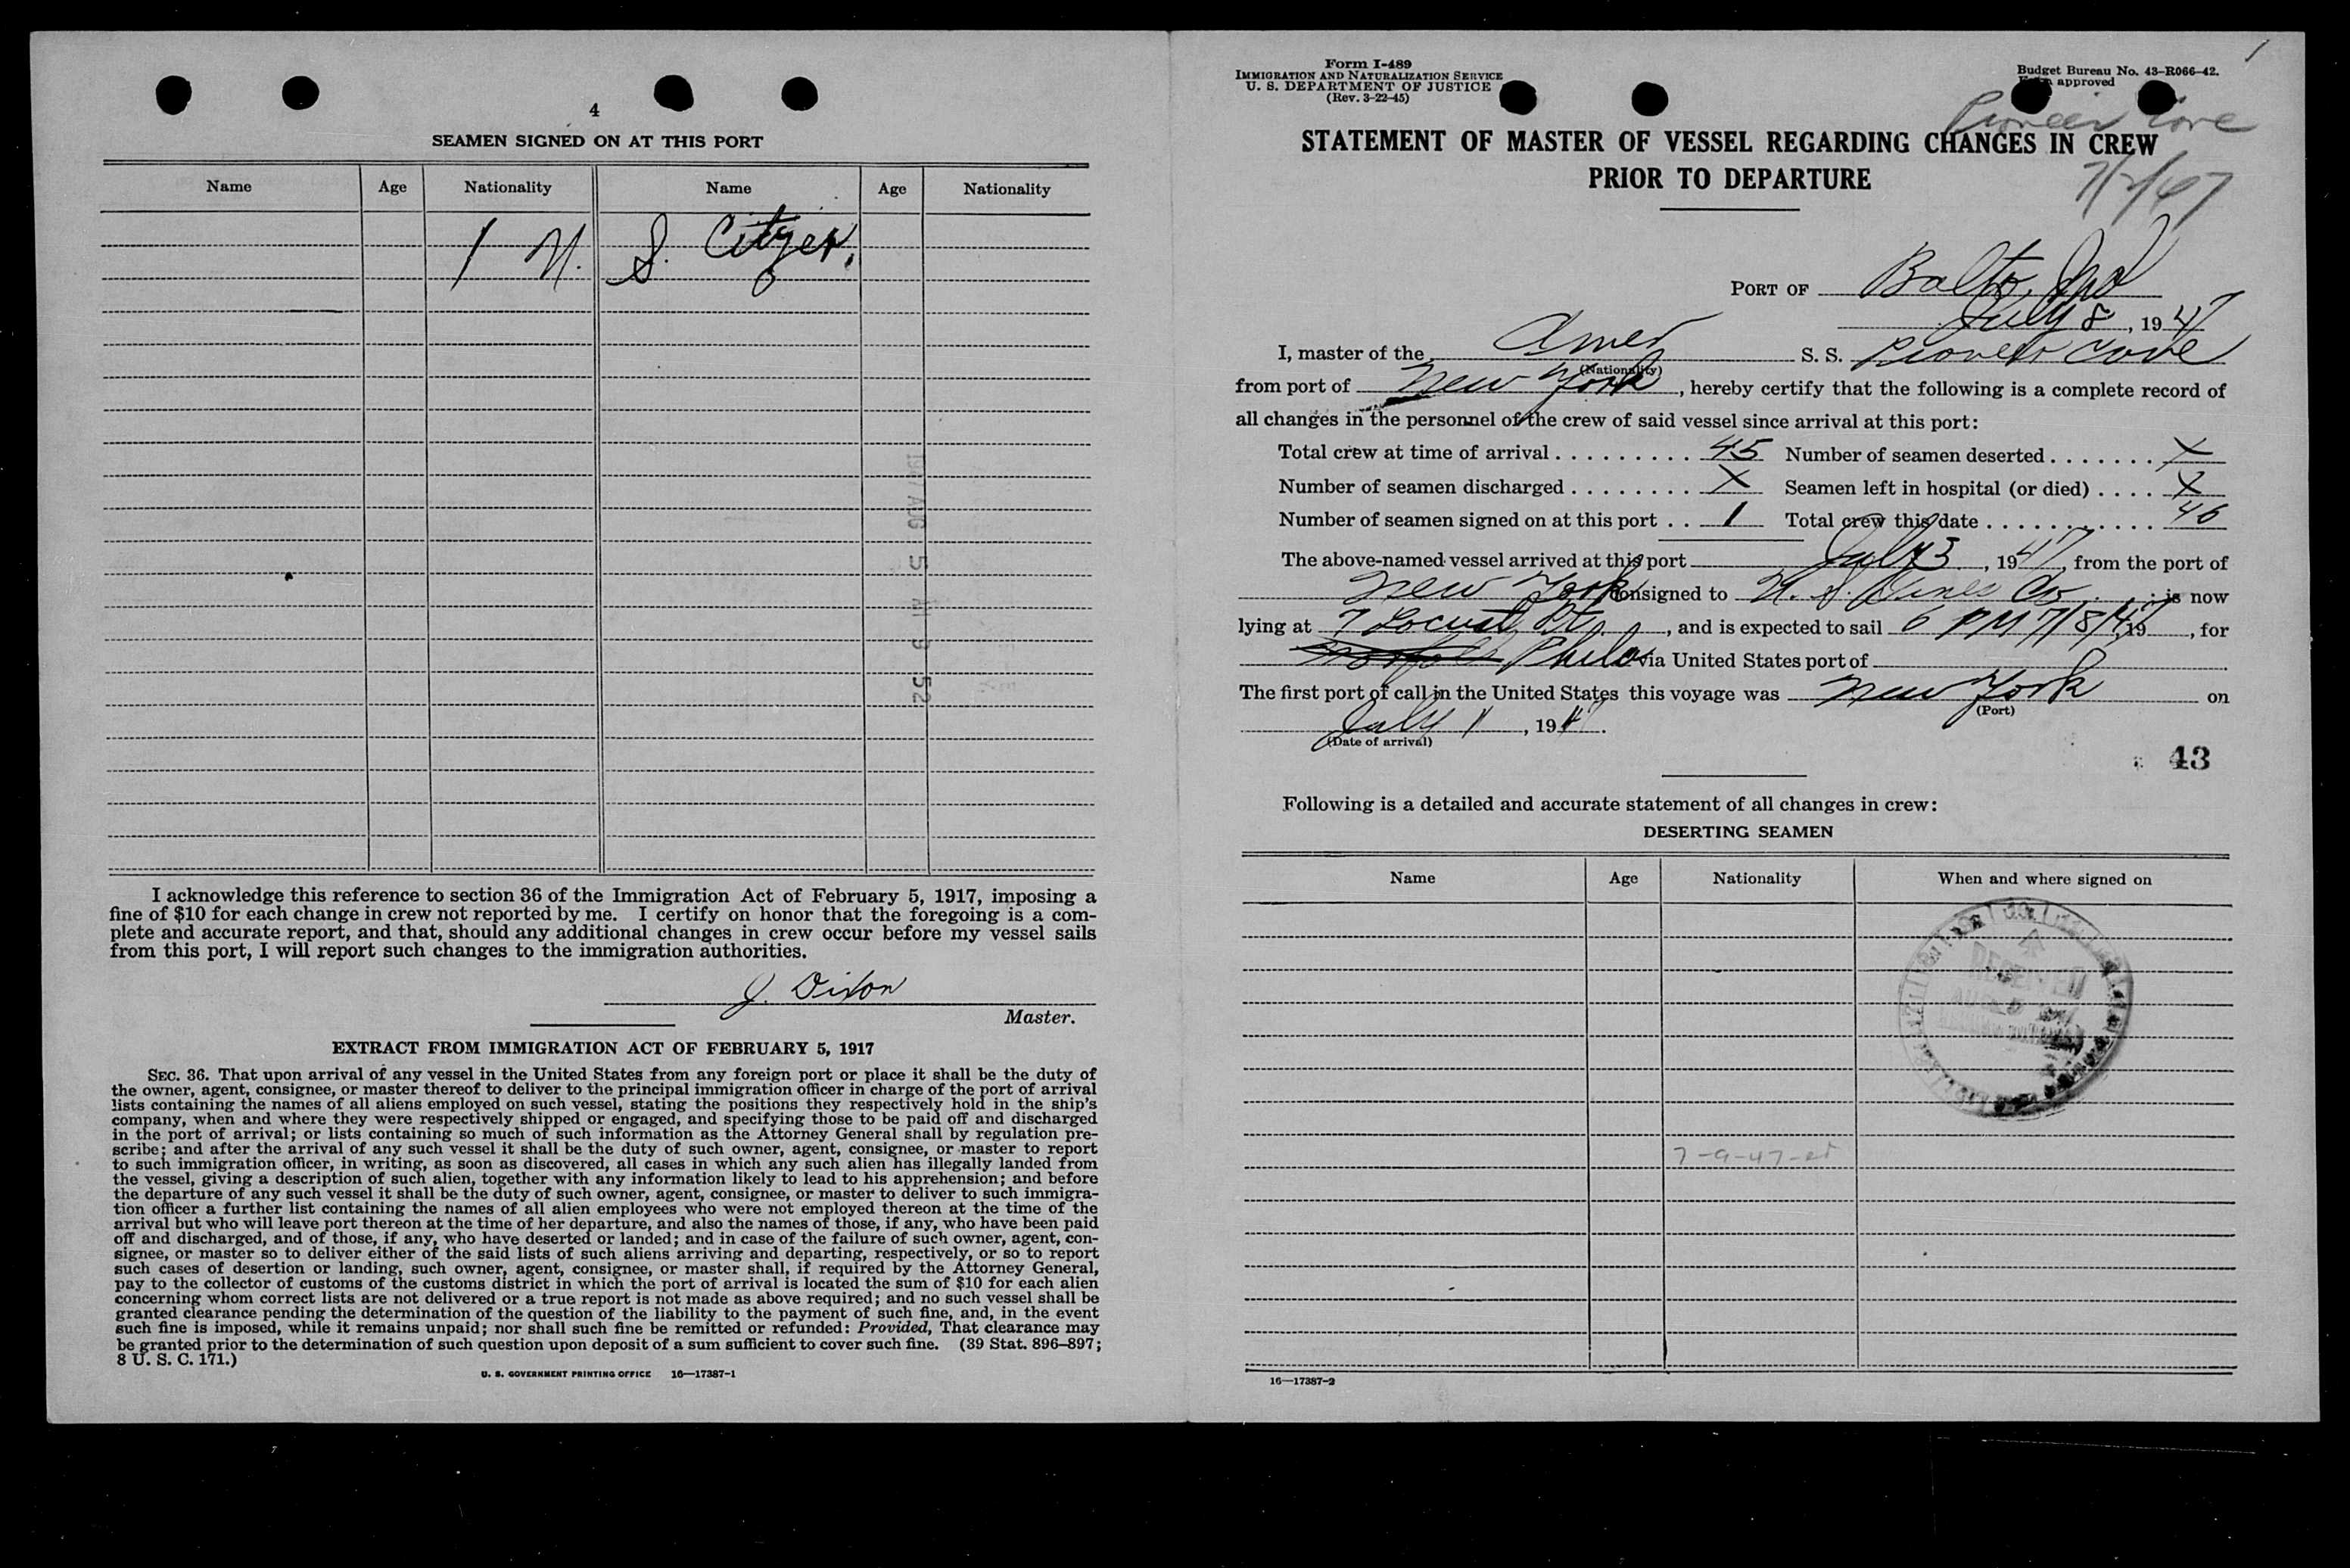 4
SEAMEN SIGNED ON AT THIS PORT
Name Age Nationality Name Age Nationality
1 U. S. Citizen.
1947 AUG 5 AM 9 52
I acknowledge this reference to section 36 of the Immigration Act of February 5, 1917, imposing a
fine of $10 for each change in crew not reported by me. I certify on honor that the foregoing is a com-
plete and accurate report, and that, should any additional changes in crew occur before my vessel sails
from this port, I will report such changes to the immigration authorities.
J. Dixon
Master.
EXTRACT FROM IMMIGRATION ACT OF FEBRUARY 5, 1917
SEC. 36. That upon arrival of any vessel in the United States from any foreign port or place it shall be the duty of
the owner, agent, consignee, or master thereof to deliver to the principal immigration officer in charge of the port of arrival
lists containing the names of all aliens employed on such vessel, stating the positions they respectively hold in the ship's
company, when and where they were respectively shipped or engaged, and specifying those to be paid off and discharged
in the port of arrival; or lists containing so much of such information as the Attorney General shall by regulation pre-
scribe; and after the arrival of any such vessel it shall be the duty of such owner, agent, consignee, or master to report
to such immigration officer, in writing, as soon as discovered, all cases in which any such alien has illegally landed from
the vessel, giving a description of such alien, together with any information likely to lead to his apprehension; and before
the departure of any such vessel it shall be the duty of such owner, agent, consignee, or master to deliver to such immigra-
tion officer a further list containing the names of all alien employees who were not employed thereon at the time of the
arrival but who will leave port thereon at the time of her departure, and also the names of those, if any, who have been paid
off and discharged, and of those, if any, who have deserted or landed; and in case of the failure of such owner, agent, con-
signee, or master so to deliver either of the said lists of such aliens arriving and departing, respectively, or so to report
such cases of desertion or landing, such owner, agent, consignee, or master shall, if required by the Attorney General,
pay to the collector of customs of the customs district in which the port of arrival is located the sum of $10 for each alien
concerning whom correct lists are not delivered or a true report is not made as above required; and no such vessel shall be
granted clearance pending the determination of the question of the liability to the payment of such fine, and, in the event
such fine is imposed, while it remains unpaid; nor shall such fine be remitted or refunded: Provided, That clearance may
be granted prior to the determination of such question upon deposit of a sum sufficient to cover such fine. (39 Stat. 896–897;
8 U. S. C. 171.)
U. S. GOVERNMENT PRINTING OFFICE 16—17387-1
1
Form I-489
IMMIGRATION AND NATURALIZATION SERVICE
U. S. DEPARTMENT OF JUSTICE
(Rev. 3-22-45)
Budget Bureau No. 43-R066-42.
approved
Pioneer Cove
STATEMENT OF MASTER OF VESSEL REGARDING CHANGES IN CREW
PRIOR TO DEPARTURE
7/2/47
PORT OF Balto, Md
July 8, 1947
I, master of the Amer S. S. Pioneer Cove
(Nationality)
from port of New York, hereby certify that the following is a complete record of
all changes in the personnel of the crew of said vessel since arrival at this port:
Total crew at time of arrival . . . . . . . . . . 45 Number of seamen deserted . . . . . . . X
Number of seamen discharged . . . . . . . . X Seamen left in hospital (or died) . . . . X
Number of seamen signed on at this port . . 1 Total crew this date . . . . . . . . . . . . 46
The above-named vessel arrived at this port July 3, 1947, from the port of
New York consigned to U. S. Lines Co ; is now
lying at 7 Locust Pt, and is expected to sail 6 PM 7/8/47, 19 , for
Norfolk Phila via United States port of
The first port of call in the United States this voyage was New York on
(Port)
July 1, 1947.
(Date of arrival)
43
Following is a detailed and accurate statement of all changes in crew:
DESERTING SEAMEN
Name Age Nationality When and where signed on
RECEIVED
7-9-47-
16—17387-2